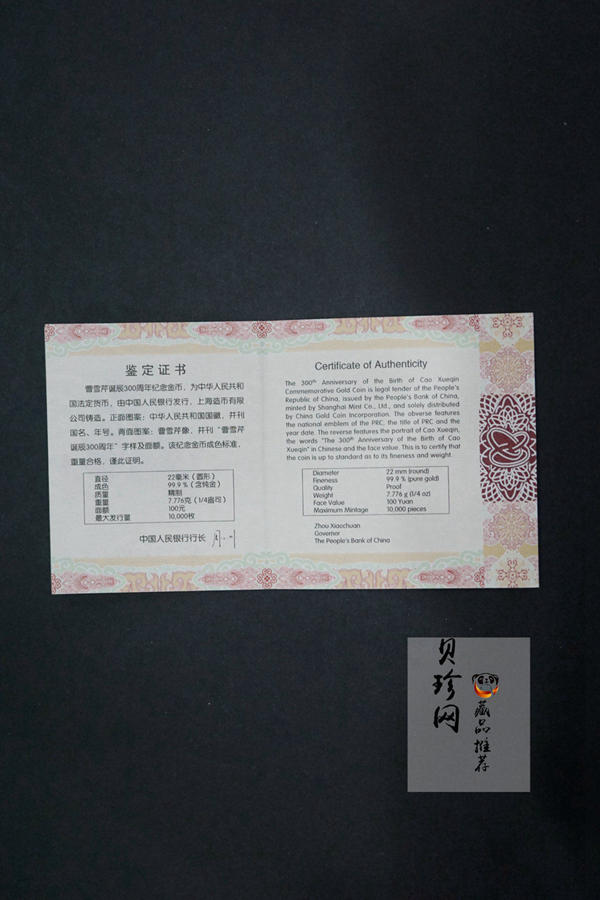 鉴定证书
曹雪芹诞辰300周年纪念金币，为中华人民共和
国法定货币，由中国人民银行发行，上海造币有限
公司铸造。正面图案：中华人民共和国国徽，并刊
国名、年号。背面图案：曹雪芹像，并刊“曹雪芹
诞辰300周年”字样及面额。该纪念金币成色标准，
重量合格，谨此证明。
直径 22毫米（圆形）
成色 99.9％（含纯金）
质量 精制
重量 7.776克（1/4盎司）
面额 100元
最大发行量 10,000枚
中国人民银行行长
Certificate of Authenticity
The 300th Anniversary of the Birth of Cao Xueqin
Commemorative Gold Coin is legal tender of the People's
Republic of China, issued by the People's Bank of China,
minted by Shanghai Mint Co., Ltd., and solely distributed
by China Gold Coin Incorporation. The obverse features
the national emblem of the PRC, the title of PRC and the
year date. The reverse features the portrait of Cao Xueqin,
the words "The 300th Anniversary of the Birth of Cao
Xueqin" in Chinese and the face value. This is to certify that
the coin is up to standard as to its fineness and weight.
Diameter 22 mm (round)
Fineness 99.9 % (pure gold)
Quality Proof
Weight 7.776 g (1/4 oz)
Face Value 100 Yuan
Maximum Mintage 10,000 pieces
Zhou Xiaochuan
Governor
The People's Bank of China
贝珍网
藏品推荐